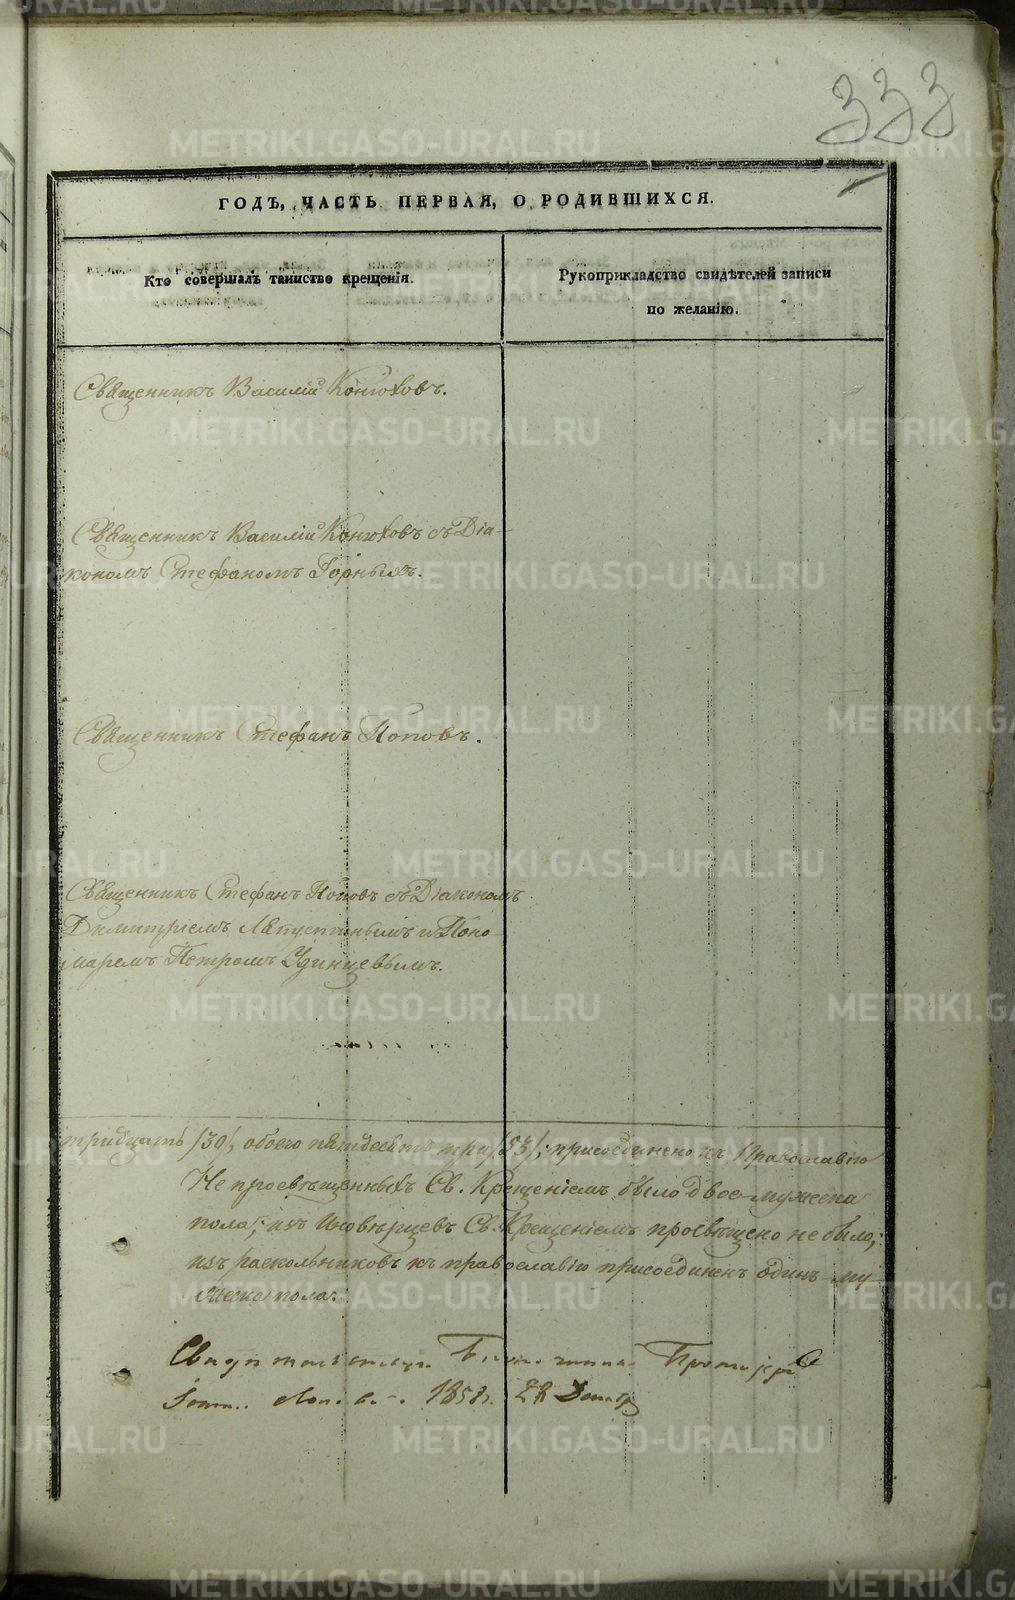 333
ГОДЪ, ЧАСТЬ ПЕРВАЯ, О РОДИВШИХСЯ.
Кто совершалъ таинство крещенія.
Рукоприкладство свидѣтелей записи
по желанію.
Священникъ Василій Конюховъ.
Священникъ Василій Конюховъ съ Діа-
кономъ Стефаномъ Горныхъ.
Священникъ Стефанъ Поповъ.
Священникъ Стефанъ Поповъ съ Діакономъ
Димитріемъ и Поно
маремъ Петромъ Удинцевымъ.
тридцать /30/, обоего пятдесятъ три /53/; присоединено къ Православію
Не просвѣщенныхъ Св. Крещеніемъ было двое мужеска
пола; изъ Иновѣрцевъ Св. Крещеніемъ просвѣщено не было;
изъ раскольниковъ къ православію присоединенъ одинъ му
жеска пола.
1858 28
METRIKI.GASO-URAL.RU